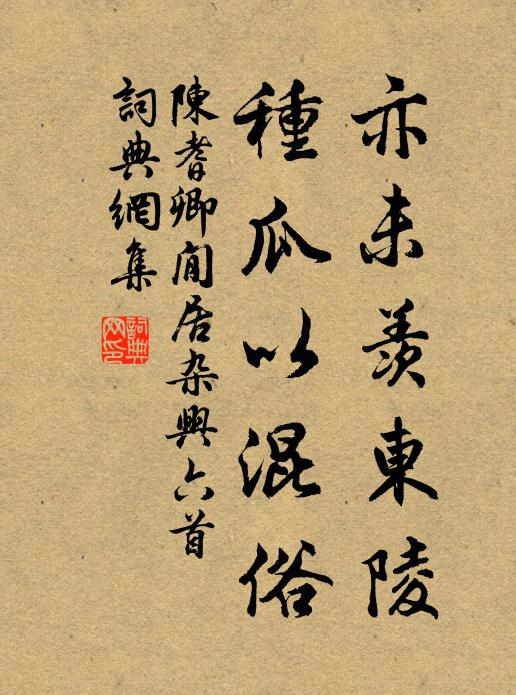 亦未羨東陵
種瓜以混俗
陳耆卿閒居杂興六首
詞典網集
詞典网印